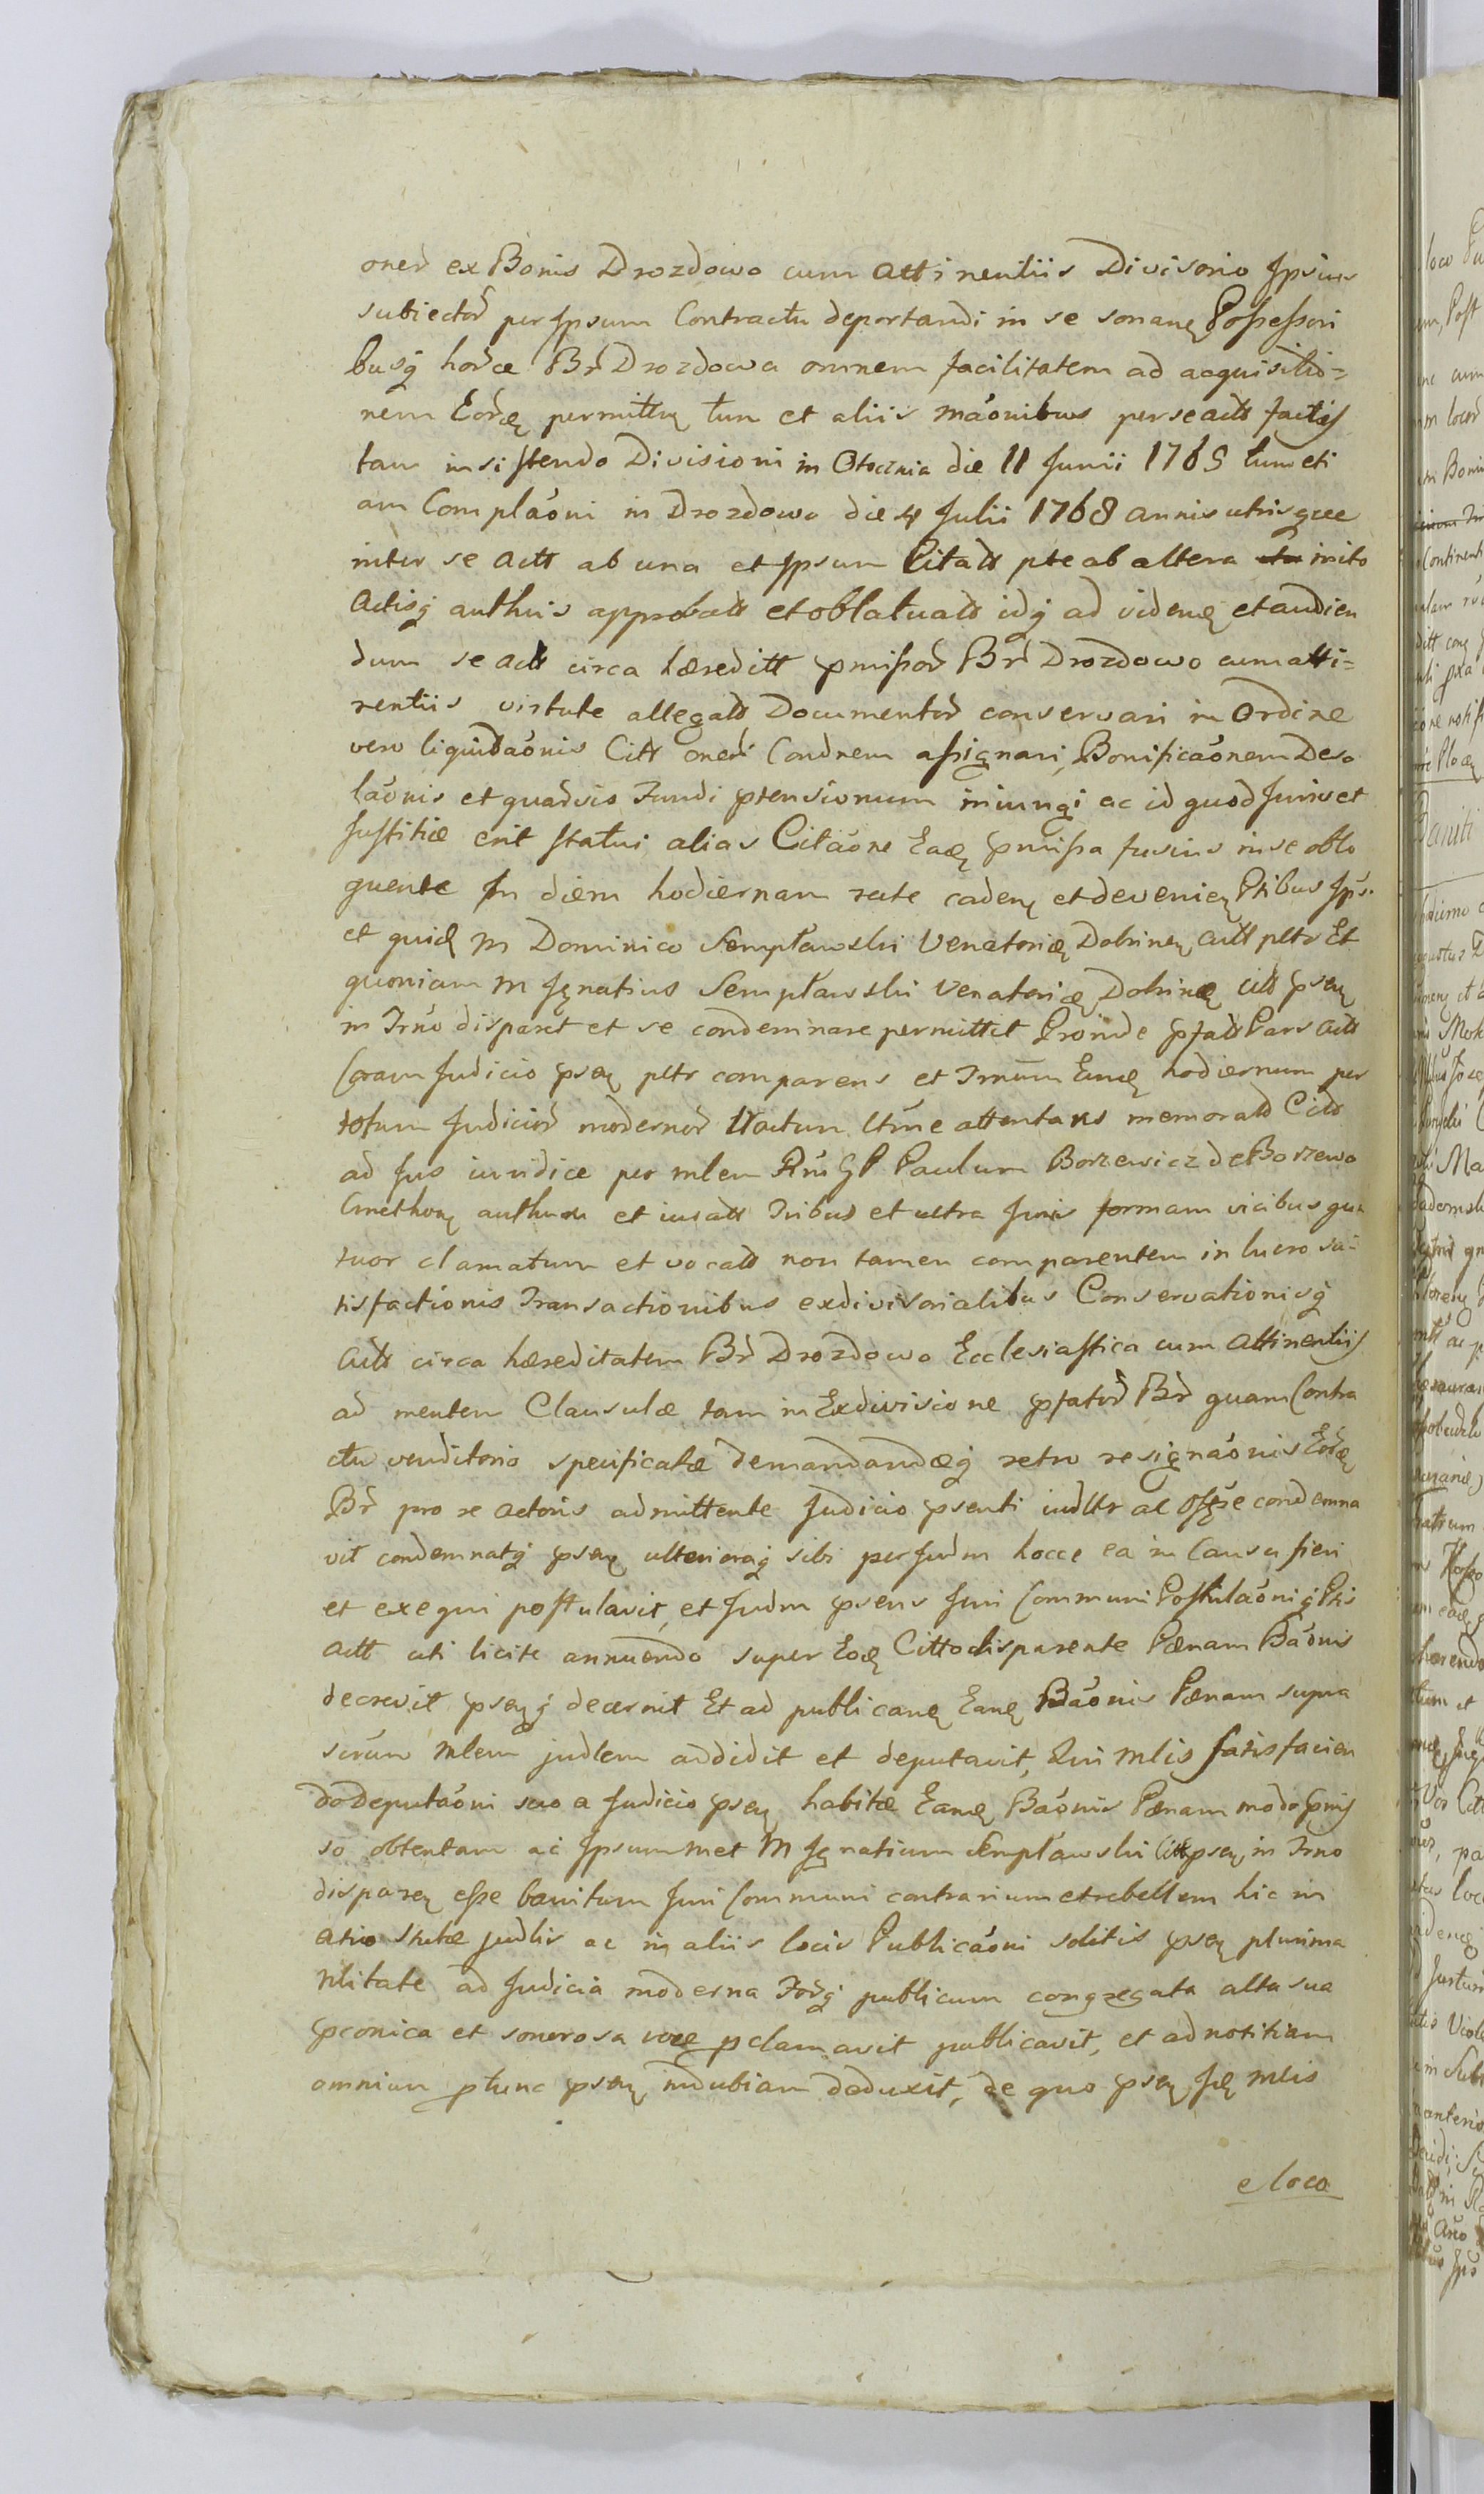 oner̃ ex Bonis Drozdowo cum attinentiis Divisorio Ipsius
subiector̃ per Ipsum Contractu deportandi in se sonanę Possessori
busq̃ horce Br̃ Drozdowa omnem facilitatem ad acquisitio=
nem Eorę permittę tum et aliis mãonibus per se actt factis
tam insistendo Divisioni in Otocznia die 11 Junii 1765 tum eti
am Complãoni in Drozdowo die 4 Julii 1768 annis utrisque
inter se actt ab una et Ipsum Citatt pte ab altera inito
Actisq̃ authcis approbatt et oblatuatt idq̃ ad videnę et audien
dum se actt circa hæreditt pmissor̃ Br̃ Drozdowo cum atti=
nentiis virtute allegatt Documentor̃ conservari in Ordine
vero liquidãonis Citt oner̃ Condnem assignari, Bonificãonem Deso
lãonis et quarvis Fundi ptensionum iniungi ac id quod Juris et
Justitiæ erit statui alias Citãone Eaę pmissa fusius in se oblo
quente In diem hodiernam rite cadenę et devenienę Ptibus Ips.
et quidę M Dominico Sempławski Venatorię Dobrinenę actt pltr Et
quoniam M Ignatius Sempławski Venatorię Dobrinę citt psenę
in Trno disparet et se condemnare permittit Proinde pfatt Pars actt
Coram Judicio psenę pltr comparens et Trnum Eunę hodiernum per
totum Judicior̃ modernor̃ tractum ltme attentans memoratt Citt
ad Jus iuridice per mlem Rm GP Paulum Borzewicz de Borzewo
Cmethonę authum et iuratt Tribus et ultra Juris formam vicibus qua
tuor clamatum et vocatt non tamen comparentem in lucro sa=
tisfactionis Transactionibus exdivisorialibus Conservationisq̃
actt circa hæreditatem Br̃ Drozdowo Ecclesiastica cum attinentiis
ad mentem Clausulæ tam in Exdivisione pfator̃ Br̃ quam Contra
ctu venditorio specificatæ demandandæq̃ retro resignãonis Eorę
Br̃ pro re actoris admittente Judicio psenti iudltr ac condemna
vit condemnatq̃ psenę ulteriorаq̃ sibi per Judm hocce ea in Causa fieri
et exequi postulavit, et Judm psens Juri Communi Postulãoniq̃ Ptis
actt uti licite annuendo super Eoę Citto disparente Pænam Bãonis
decrevit psenęq̃ decernit Et ad publicanę Eanę Bãonis Pænam supra
scrum Mlem judlem addidit et deputavit, Qui Mlis satisfacien
do deputãoni suo a Judicio psenę habitæ Eanę Bãonis Pænam modo pmis
so obtentam ac Ipsummet M Ignatium Sempławski Citt psenę in Trno
disparenę esse banitum Juri Communi contrarium et rebellem hic in
atrio Stubæ judlis ac in aliis locis Publicãoni solitis psenę plurima
Nlitate ad Judicia moderna Forq̃ publicum congregata alta sua
pconica et sonorosa voce pclamavit publicavit, et ad notitiam
omnium ptunc psenę indubiam deduxit, de quo psenę Ję mlis
e loco